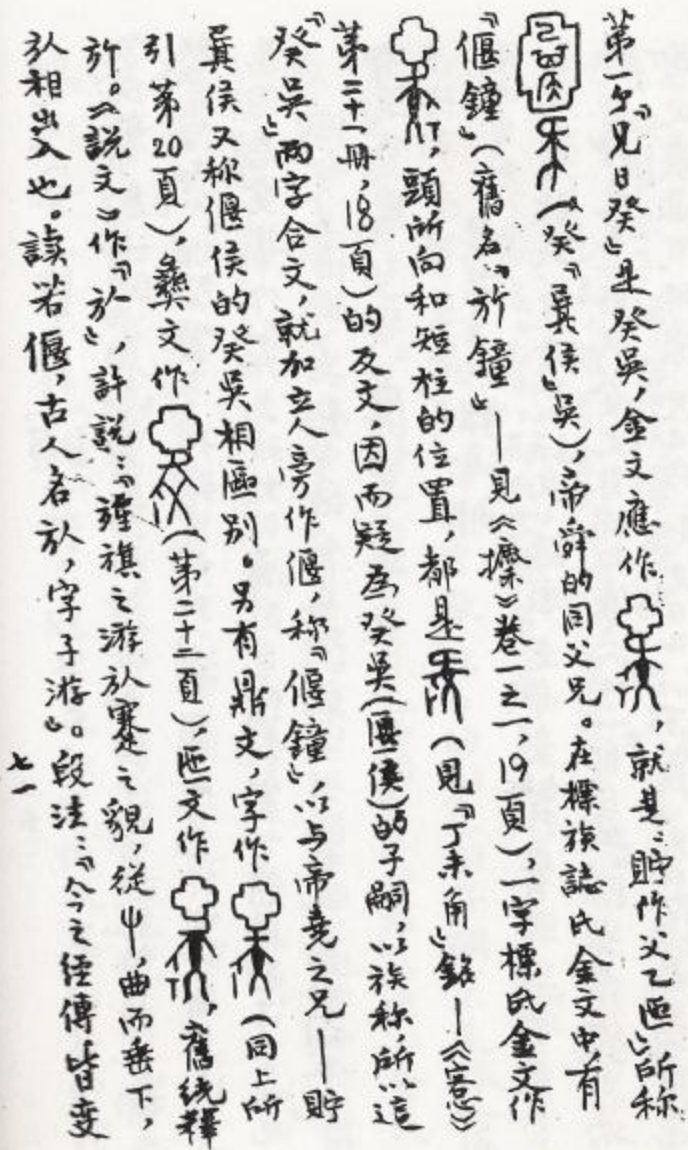 第一句『兄日癸』是癸吴，金文應作，就是：貯作父乙匜』所称
（癸『曩侯』吴），帝舜的同父兄。在標族誌氏金文中，有
『偃鐘』（舊名『㫃鐘』——見《攈》卷一之一，19頁），一字標氏金文作
，頭所向和短柱的位置，都是（見『丁未角』銘——《愙》
第二十一册，18頁）的反文，因而疑為癸吴（匽侯）的子嗣，以族称，所以這
『癸吴』兩字合文，就加立人旁作偃，称『偃鐘』，以与帝堯之兄——貯
曩侯又称偃侯的癸吴相區别。另有鼎文，字作（同上所
引第20頁），彝文作（第二十二頁），匜文作，舊统釋
㫃。《説文》作『㫃』，許説：『旌旗之游㫃蹇之貌，從屮，曲而垂下，
㫃相出入也。讀若偃，古人名㫃，字子游』。段注：『今之经傳皆变
七一